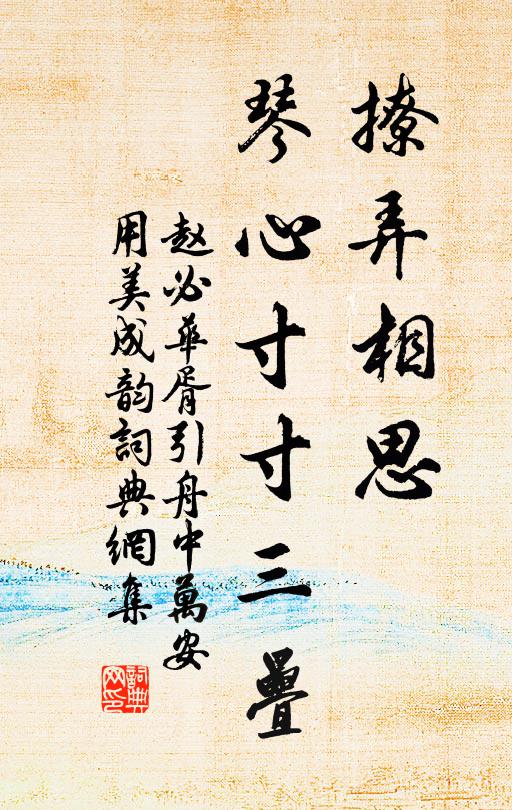 撩弄相思
琴心寸寸三疊
赵必華胥引舟中萬安
用美成韵詞典網集
詞典
网印